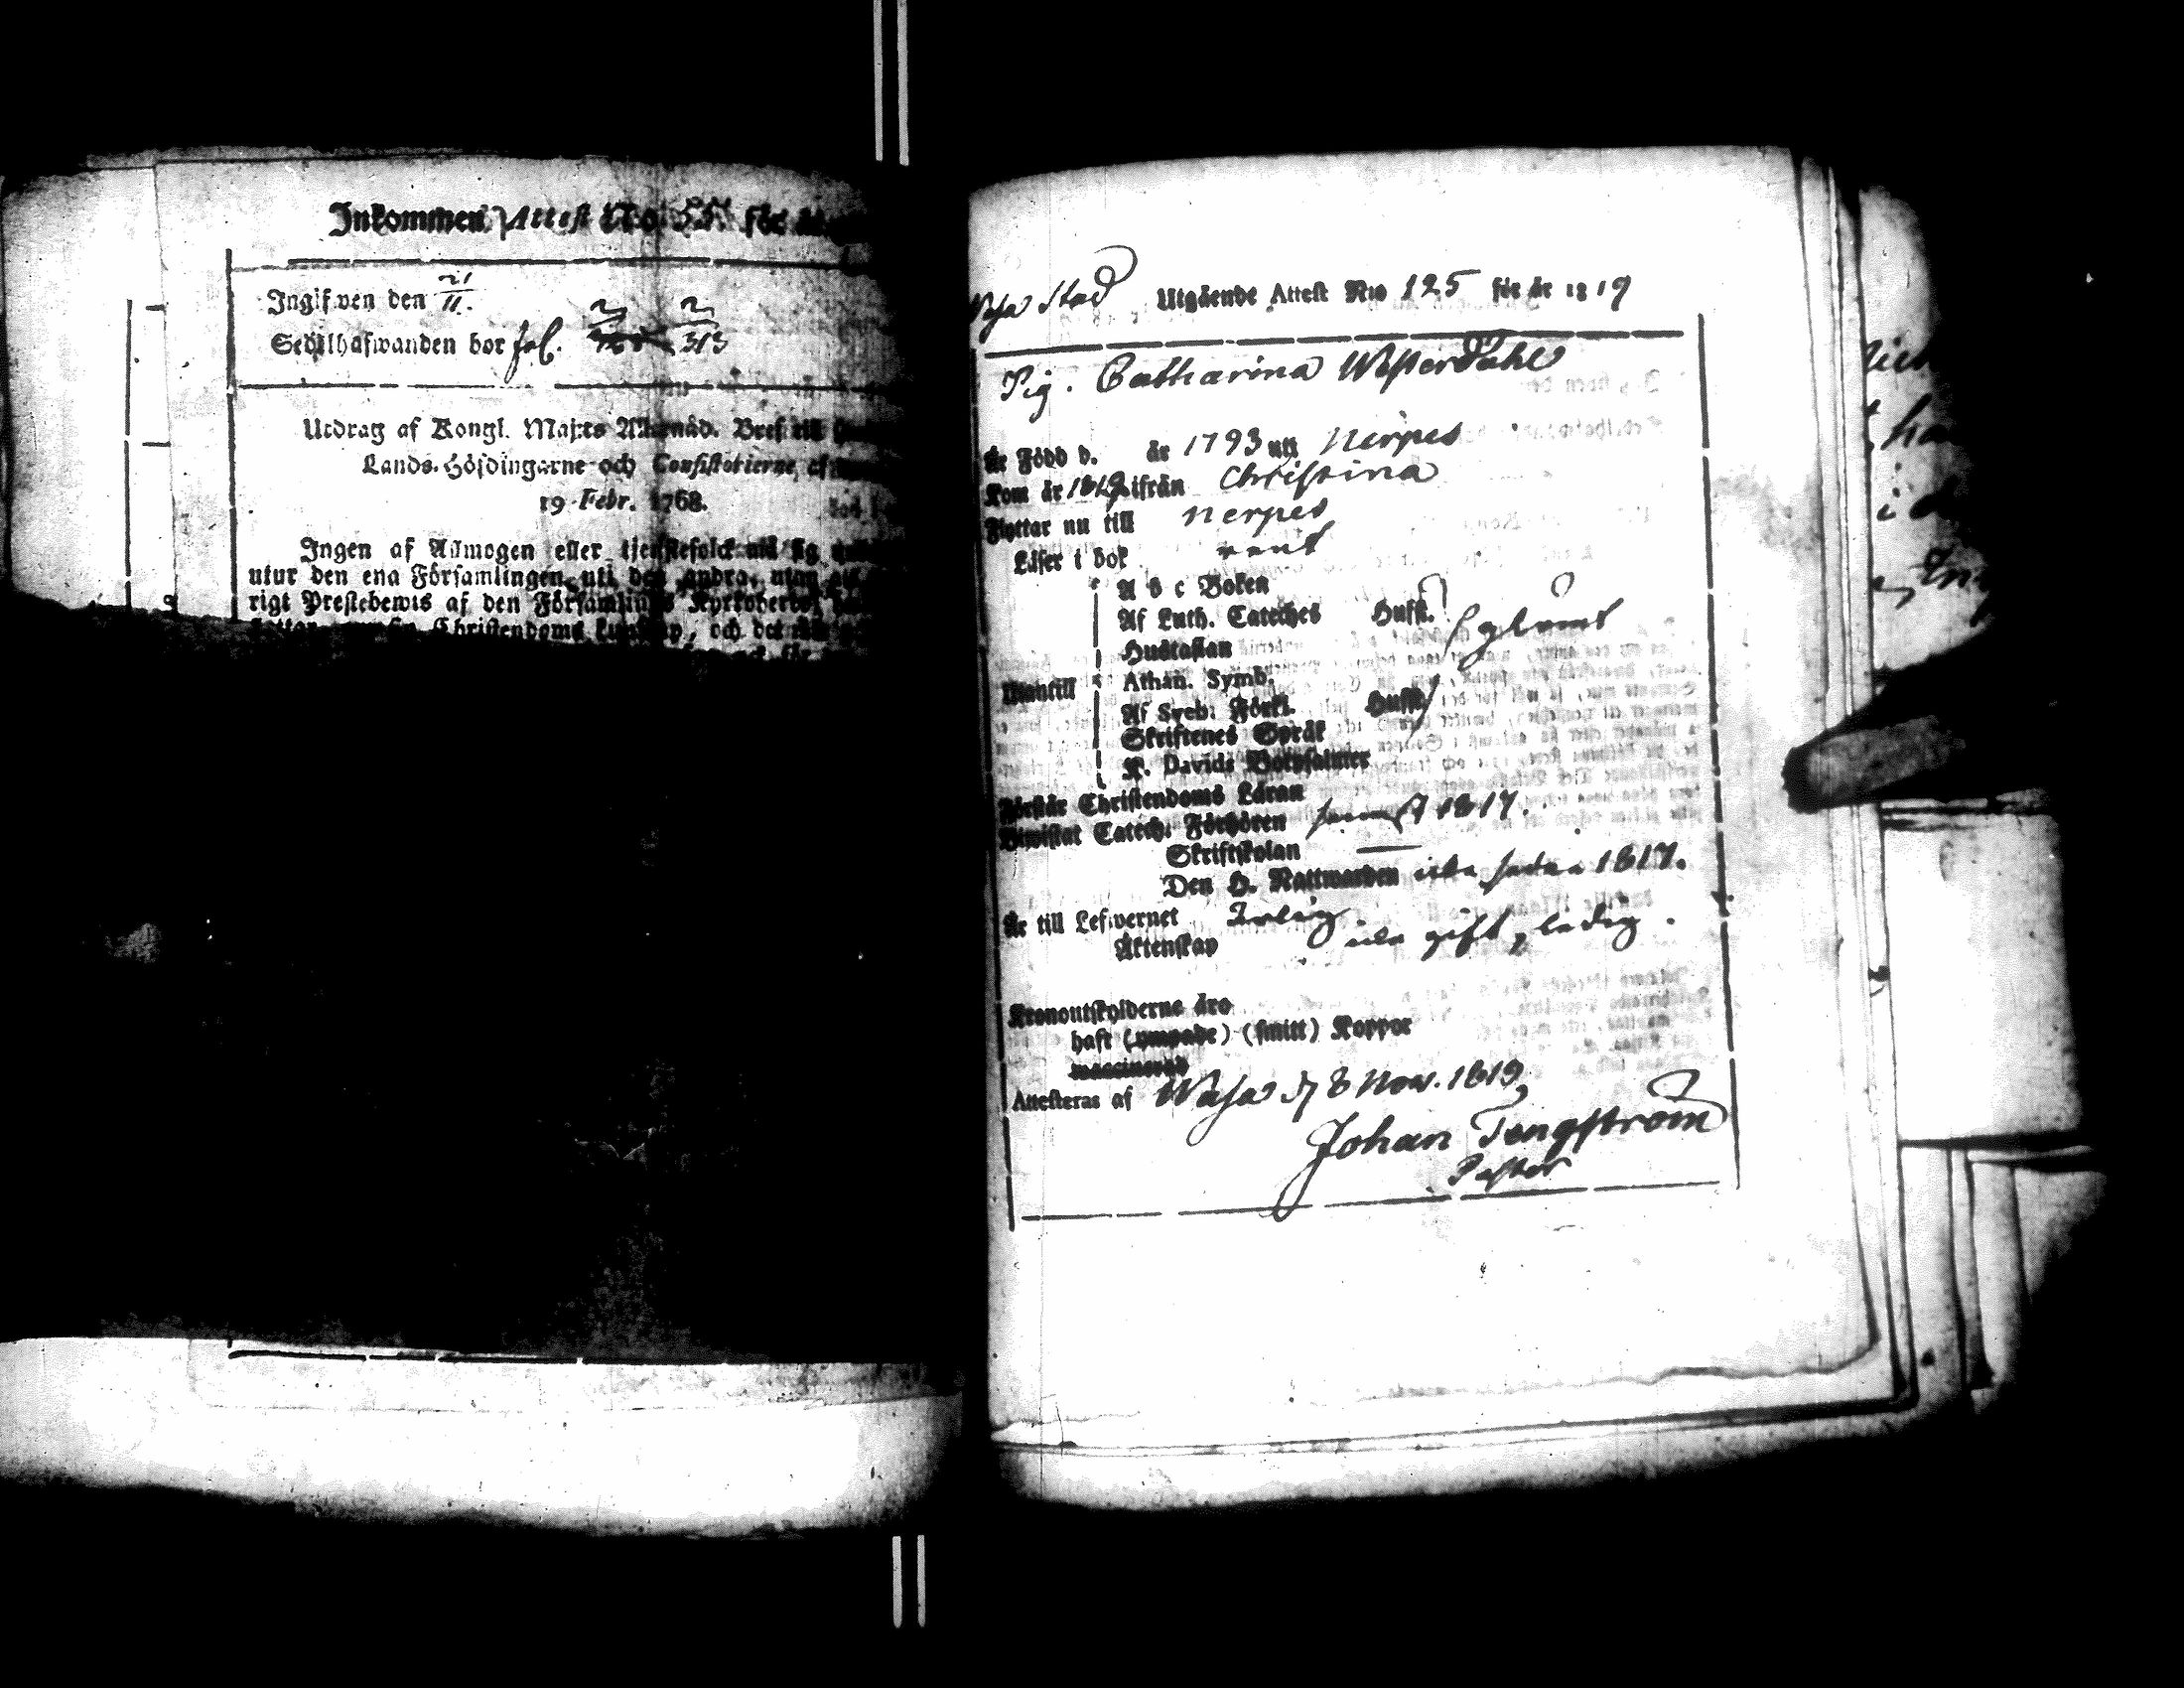 Inkommen Attest No 55 för
Ingifven den 21/11.
Sedelhafwanden bor Jof. 2/313
Utdrag af Kongl. Maj:ts Allernåd. Bref till
Lands-Höfdingarne och Consistorierne, af
19 Febr. 1768.
Ingen af Allmogen eller tjenstefolck må sig
utur den ena Församlingen uti den andra, utan
rigt Prestebewis af den Församlings Kyrkoherde
Christendoms kunskap, och det
Wasa Stad Utgående Attest Nro 125 för år 1819
Pig. Catharina Westerdahl
Är Född d. år 1793 uti Nerpes
Kom år 1819 ifrån Christina
Flyttar nu till Nerpes
Läser i bok rent
A b c Boken
Af Luth. Cateches Husk.
Hustaflan
Utantill Athan. Symb.
Af Sveb. Förkl. Husk.
Skriftenes Språk
K. Davids Botpsalmer
Förstår Christendoms Läran
Biwistat Catech. Förhören 1817.
Skriftskolan —
Den H. Nattwarden icke sedan 1817.
Är till Lefwernet Ärlig.
Äktenskap icke gift, ledig.
Kronoutskylderne äro
haft (ympade) (smitt) Koppor
waccinerad
Attesteras af Wasa d 8 Nov. 1819,
Johan Tengström
Pastor